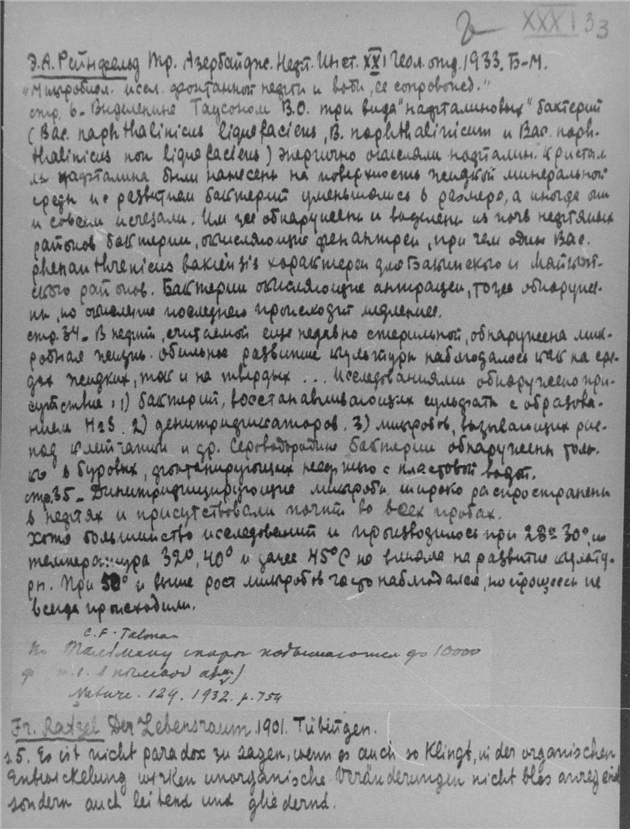 XXXI 33
Э.А. Рейнфельд Тр. Азербайдж. Нефт. Инст. XXI Геол. отд. 1933. Б-М.
"Микробиол. исслед. фонтанной нефти и воды, ее сопровожд."
стр. 6 - Выделенные Таусоном В.О. три вида "нафталиновых" бактерий
(Bac. naphthalinicus liquefaciens, B. naphthalinicum и Bac. naph-
thalinicus non liquefaciens) энергично окисляли нафталин. Кристал
лы нафталина были нанесены на поверхность жидкой минеральной
среды и с развитием бактерий уменьшались в размере, а иногда они
и совсем исчезали. Им же обнаружены и выделены из почв нефтяных
районов бактерии, окисляющие фенантрен, при чем один Bac.
phenanthrenicus bakiensis характерен для Бакинского и Майкоп-
ского районов. Бактерии окисляющие антрацен, тоже обнаруже-
ны, но окисление последнего происходит медленнее.
стр. 34 - В нефти, считаемой еще недавно стерильной, обнаружена мик-
робная жизнь. обильное развитие культуры наблюдалось как на сре-
дах жидких, так и на твердых ... Исследованиями обнаружено при-
сутствие: 1) бактерий, восстанавливающих сульфаты с образова-
нием H2S. 2) денитрификаторов. 3) микробов, вызывающих рас-
пад клетчатки и др. Сероводородные бактерии обнаружены толь-
ко в буровых, фонтанирующих нефтью с пластовой водой.
стр. 35 - Динитрифицирующие микробы широко распространены
в нефтях и присутствовали почти во всех пробах.
Хотя большинство исследований и производилось при 28° 30°, но
температура 32°, 40° и даже 45°С не влияла на развитие культу-
ры. При 50° и выше рост микробов часто наблюдался, но процессы не
всегда происходили.
C. F. Talman
По Тальману споры подымаются до 10000
Nature. 129. 1932. p. 754
Fr. Ratzel Der Lebensraum 1901. Tübingen.
s 5. Es ist nicht paradox zu sagen, wenn es auch so klingt, in der organischen
Entwickelung wirken unorganische Veränderungen nicht blos anregend
sondern auch leitend und gliedernd.